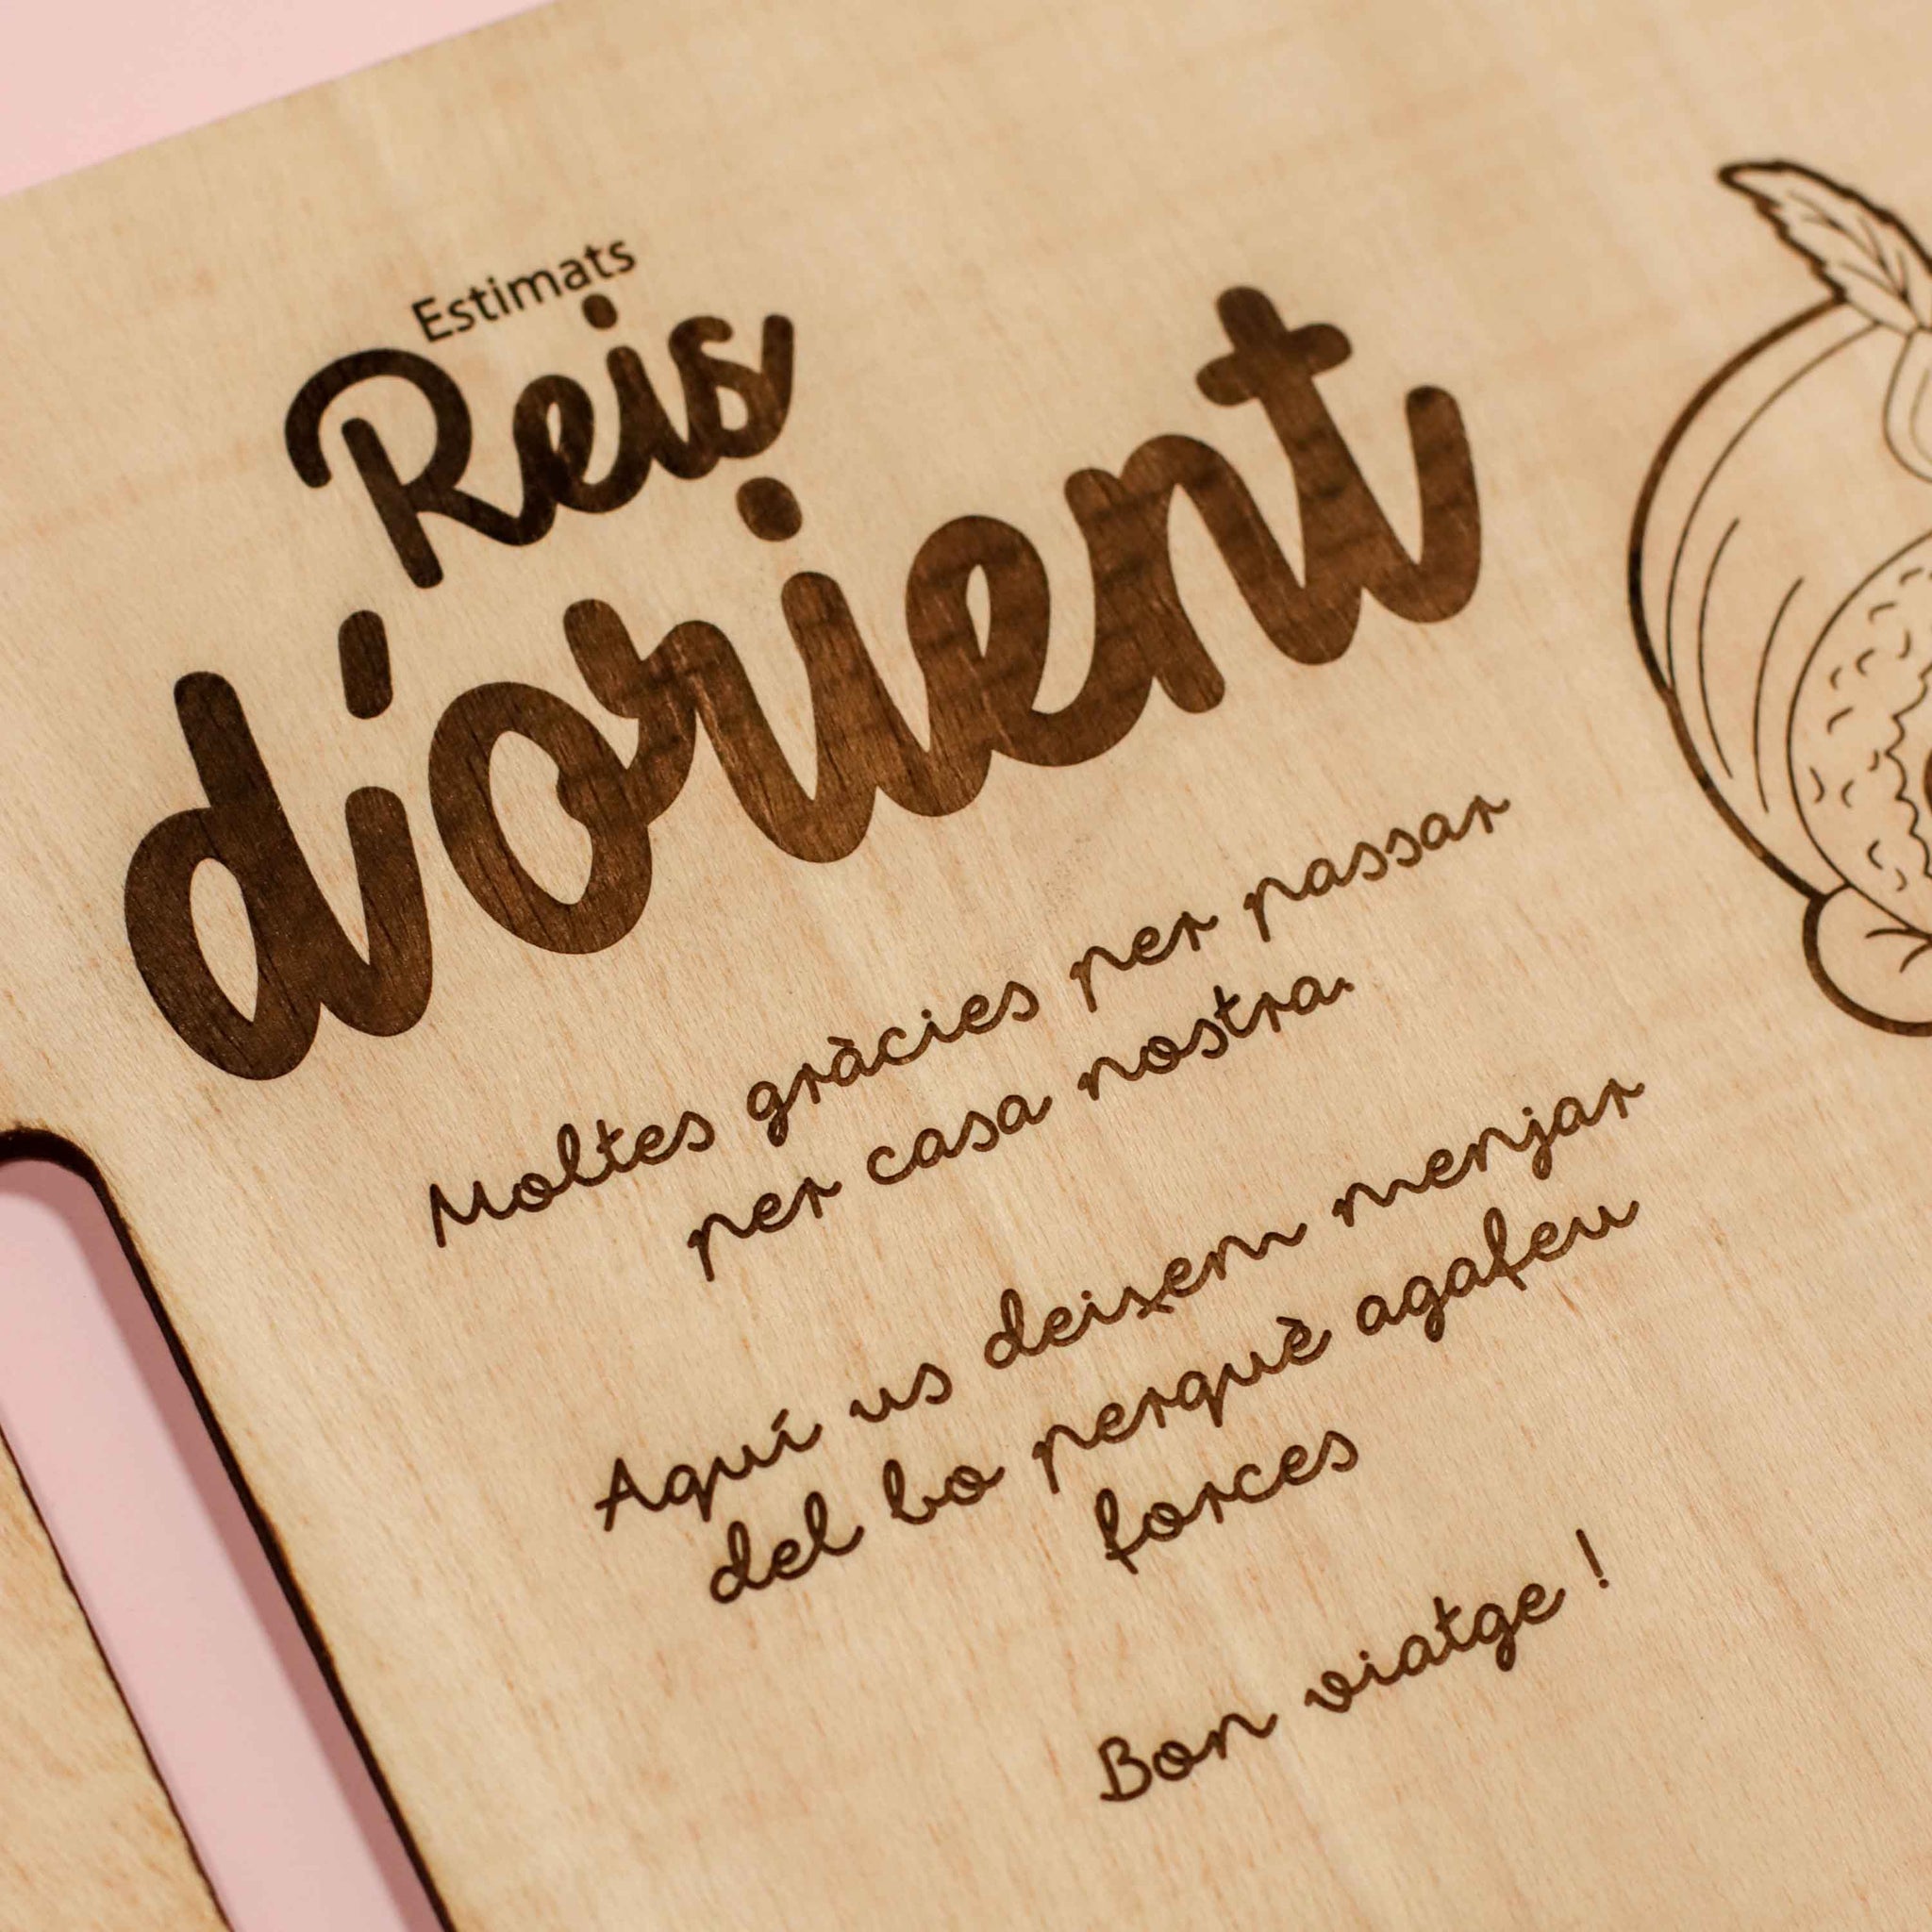 Estimats
Reis
d'orient
Moltes gràcies per passar
per casa nostra.
Aquí us deixem menjar
del bo perquè agafeu
forces
Bon viatge !